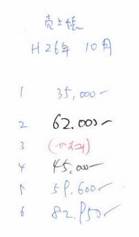 H26年 10月
1 35,000-
2 62,000-
3
4 45,000-
5 59,600-
6 82,950-